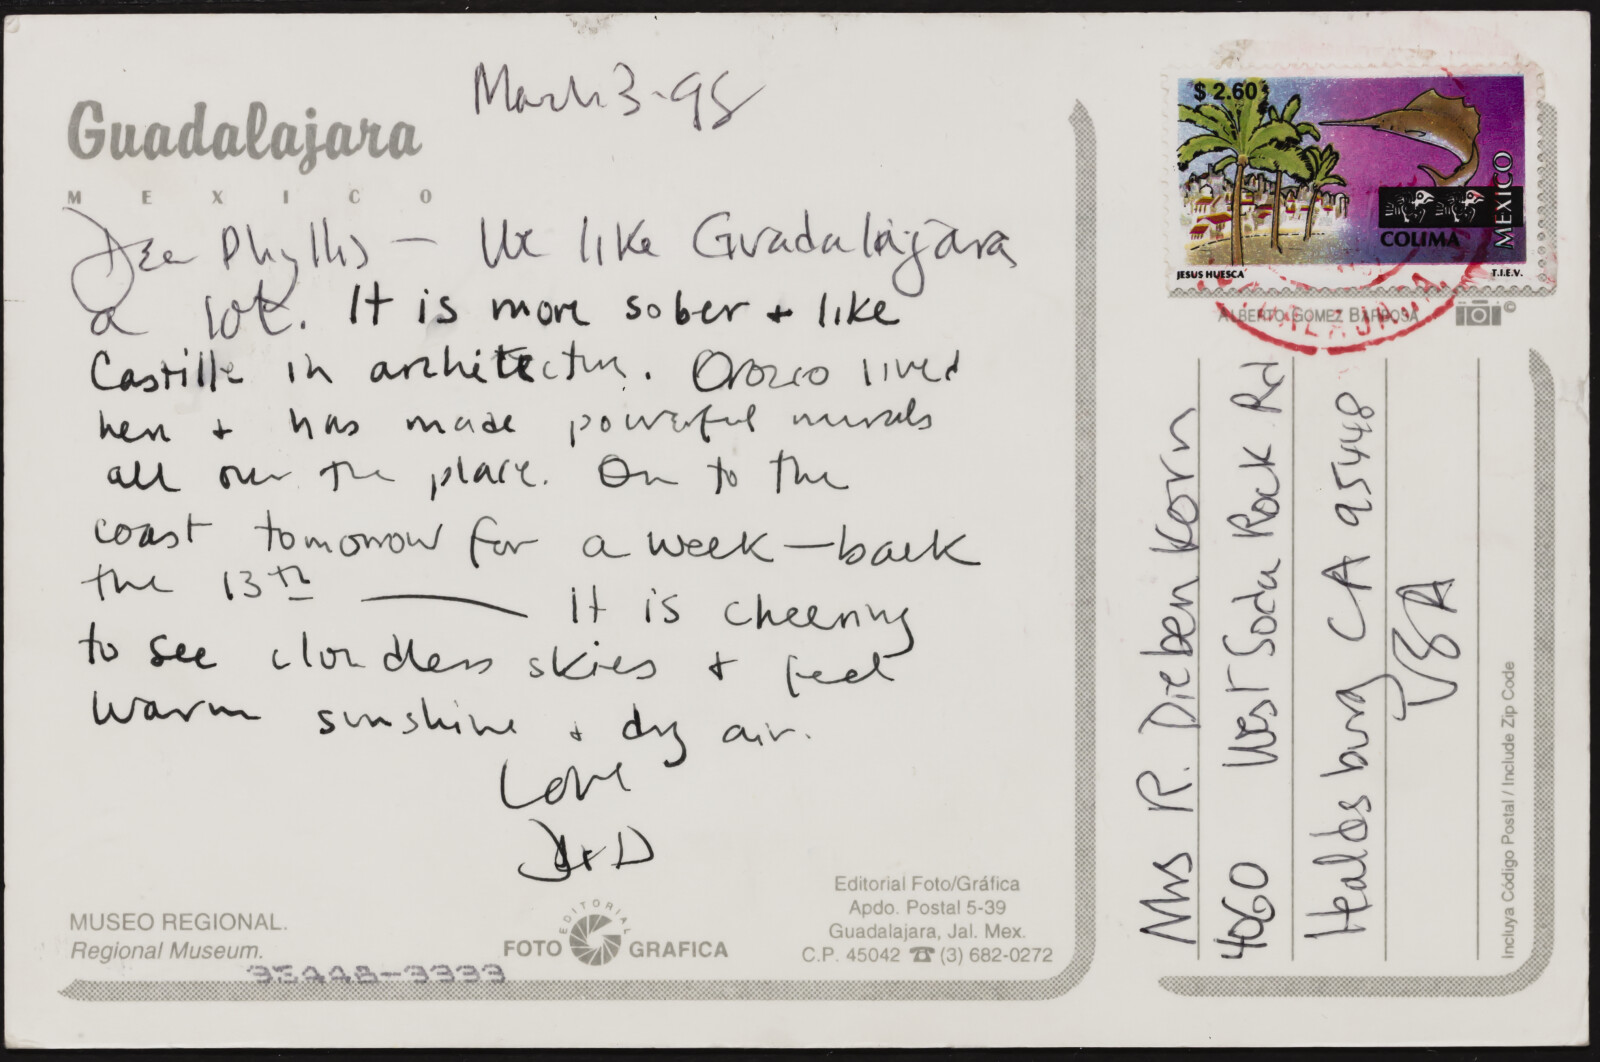 March 3-98
Guadalajara
MEXICO
Dear Phyllis — We like Guadalajara
a lot. It is more sober + like
Castille in architecture. Orozco lived
here + has made powerful murals
all over the place. On to the
coast tomorrow for a week — back
the 13th — It is cheering
to see cloudless skies + feel
warm sunshine + dry air.
Love
+ D
MUSEO REGIONAL.
Regional Museum.
95448-3333
EDITORIAL
FOTO GRAFICA
Editorial Foto/Gráfica
Apdo. Postal 5-39
Guadalajara, Jal. Mex.
C.P. 45042 ☎ (3) 682-0272
$ 2.60
MEXICO
COLIMA
JESUS HUESCA
T.I.E.V.
GUADALAJARA,
ALBERTO GOMEZ BARBOSA ©
Mrs R. Diebenkorn
4060 West Soda Rock Rd
Healdsburg CA 95448
USA
Incluya Código Postal / Include Zip Code